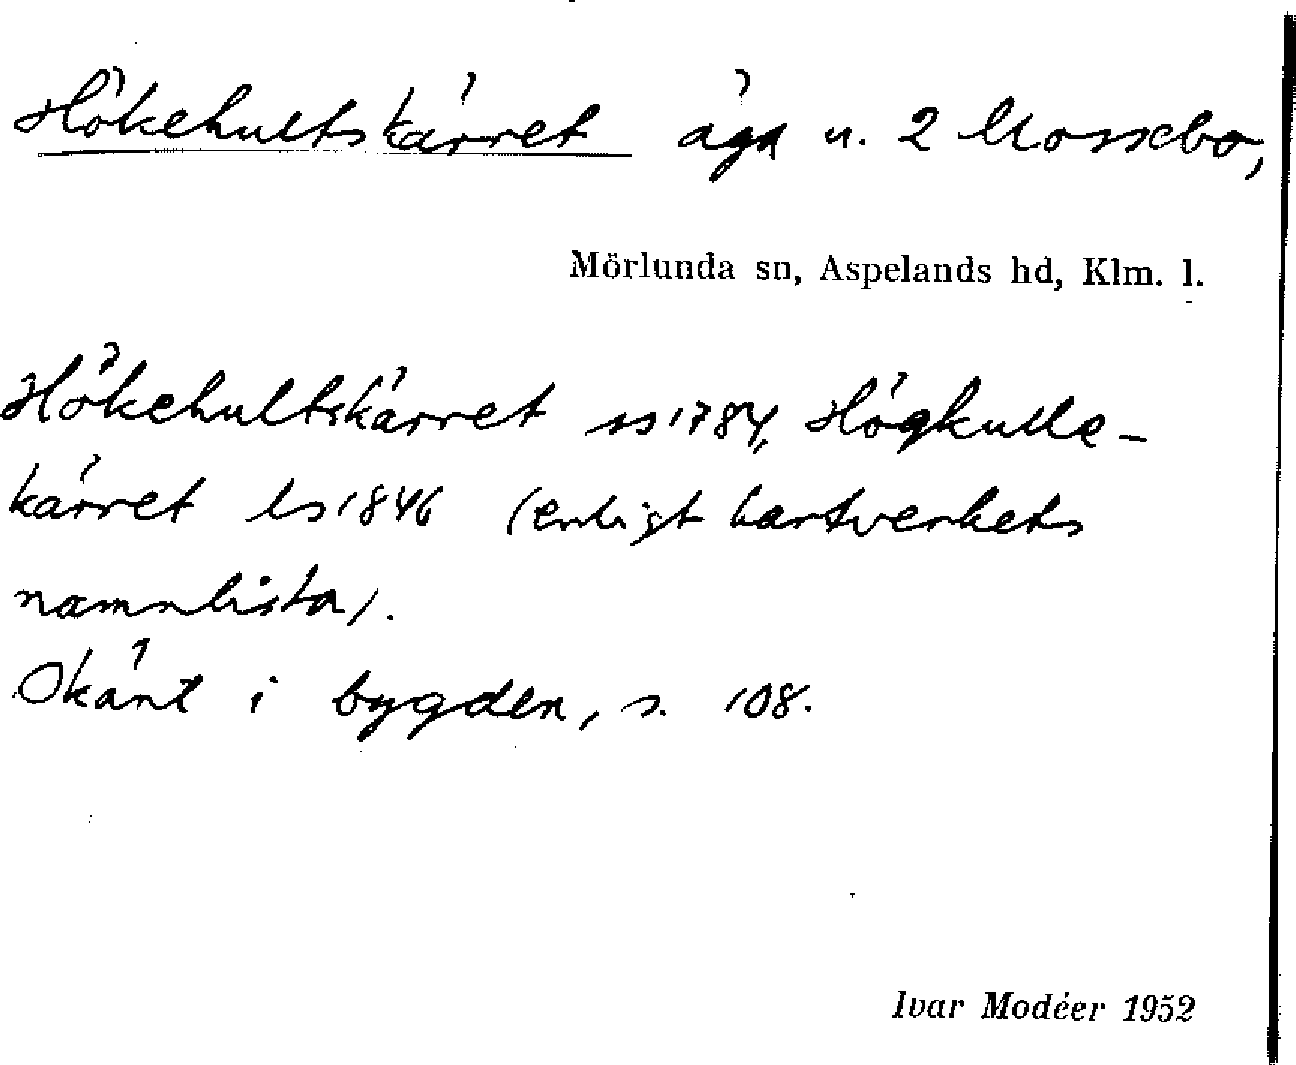 Hökehultskärret äga u. 2 Mossebo,
Mörlunda sn, Aspelands hd, Klm. l.
Hökehultskärret ss 1784, Högkulle-
kärret ls 1846 (enligt kartverkets
namnlista).
Okänt i bygden, s. 108.
Ivar Modéer 1952